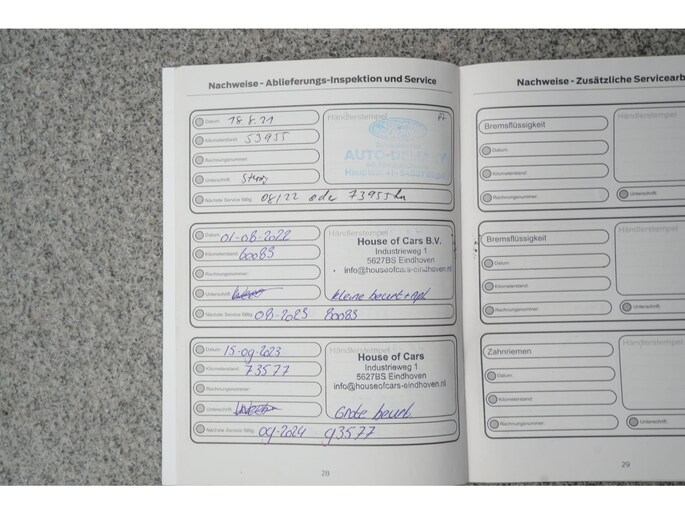 Nachweise - Ablieferungs-Inspektion und Service
Datum 18.8.21
Händlerstempel
Kilometerstand 53955
Rechnungsnummer
Unterschrift
Nächste Service fällig 08/22 ode 73955 km
Datum 01-08-2022
Händlerstempel
House of Cars B.V.
Industrieweg 1
5627BS Eindhoven
info@houseofcars-eindhoven.nl
Kilometerstand 60085
Rechnungsnummer
Unterschrift
kleine beurt + apk
Nächste Service fällig 08-2023 80085
Datum 15-09-2023
Händlerstempel
House of Cars
Industrieweg 1
5627BS Eindhoven
info@houseofcars-eindhoven.nl
Kilometerstand 73577
Rechnungsnummer
Unterschrift
Grote beurt
Nächste Service fällig 09-2024 93577
28
Nachweise - Zusätzliche Servicearb
Bremsflüssigkeit
Händlerstempel
Datum
Kilometerstand
Rechnungsnummer
Unterschrift
Bremsflüssigkeit
Händlerstempel
Datum
Kilometerstand
Rechnungsnummer
Unterschrift
Zahnriemen
Händlerstempel
Datum
Kilometerstand
Rechnungsnummer
Unterschrift
29